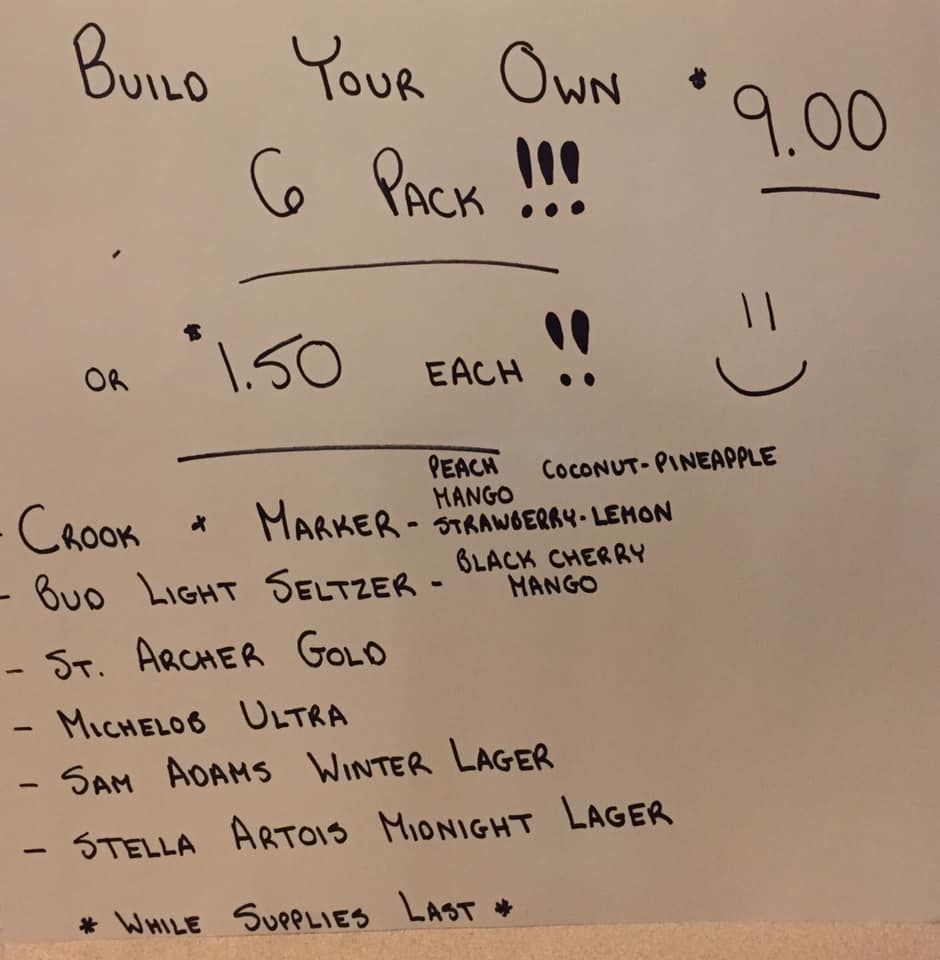 BUILD YOUR OWN $9.00
6 PACK !!!
OR $1.50 EACH !!
PEACH COCONUT-PINEAPPLE
MANGO
- CROOK & MARKER - STRAWBERRY-LEMON
BLACK CHERRY
- BUD LIGHT SELTZER - MANGO
- ST. ARCHER GOLD
- MICHELOB ULTRA
- SAM ADAMS WINTER LAGER
- STELLA ARTOIS MIDNIGHT LAGER
* WHILE SUPPLIES LAST *